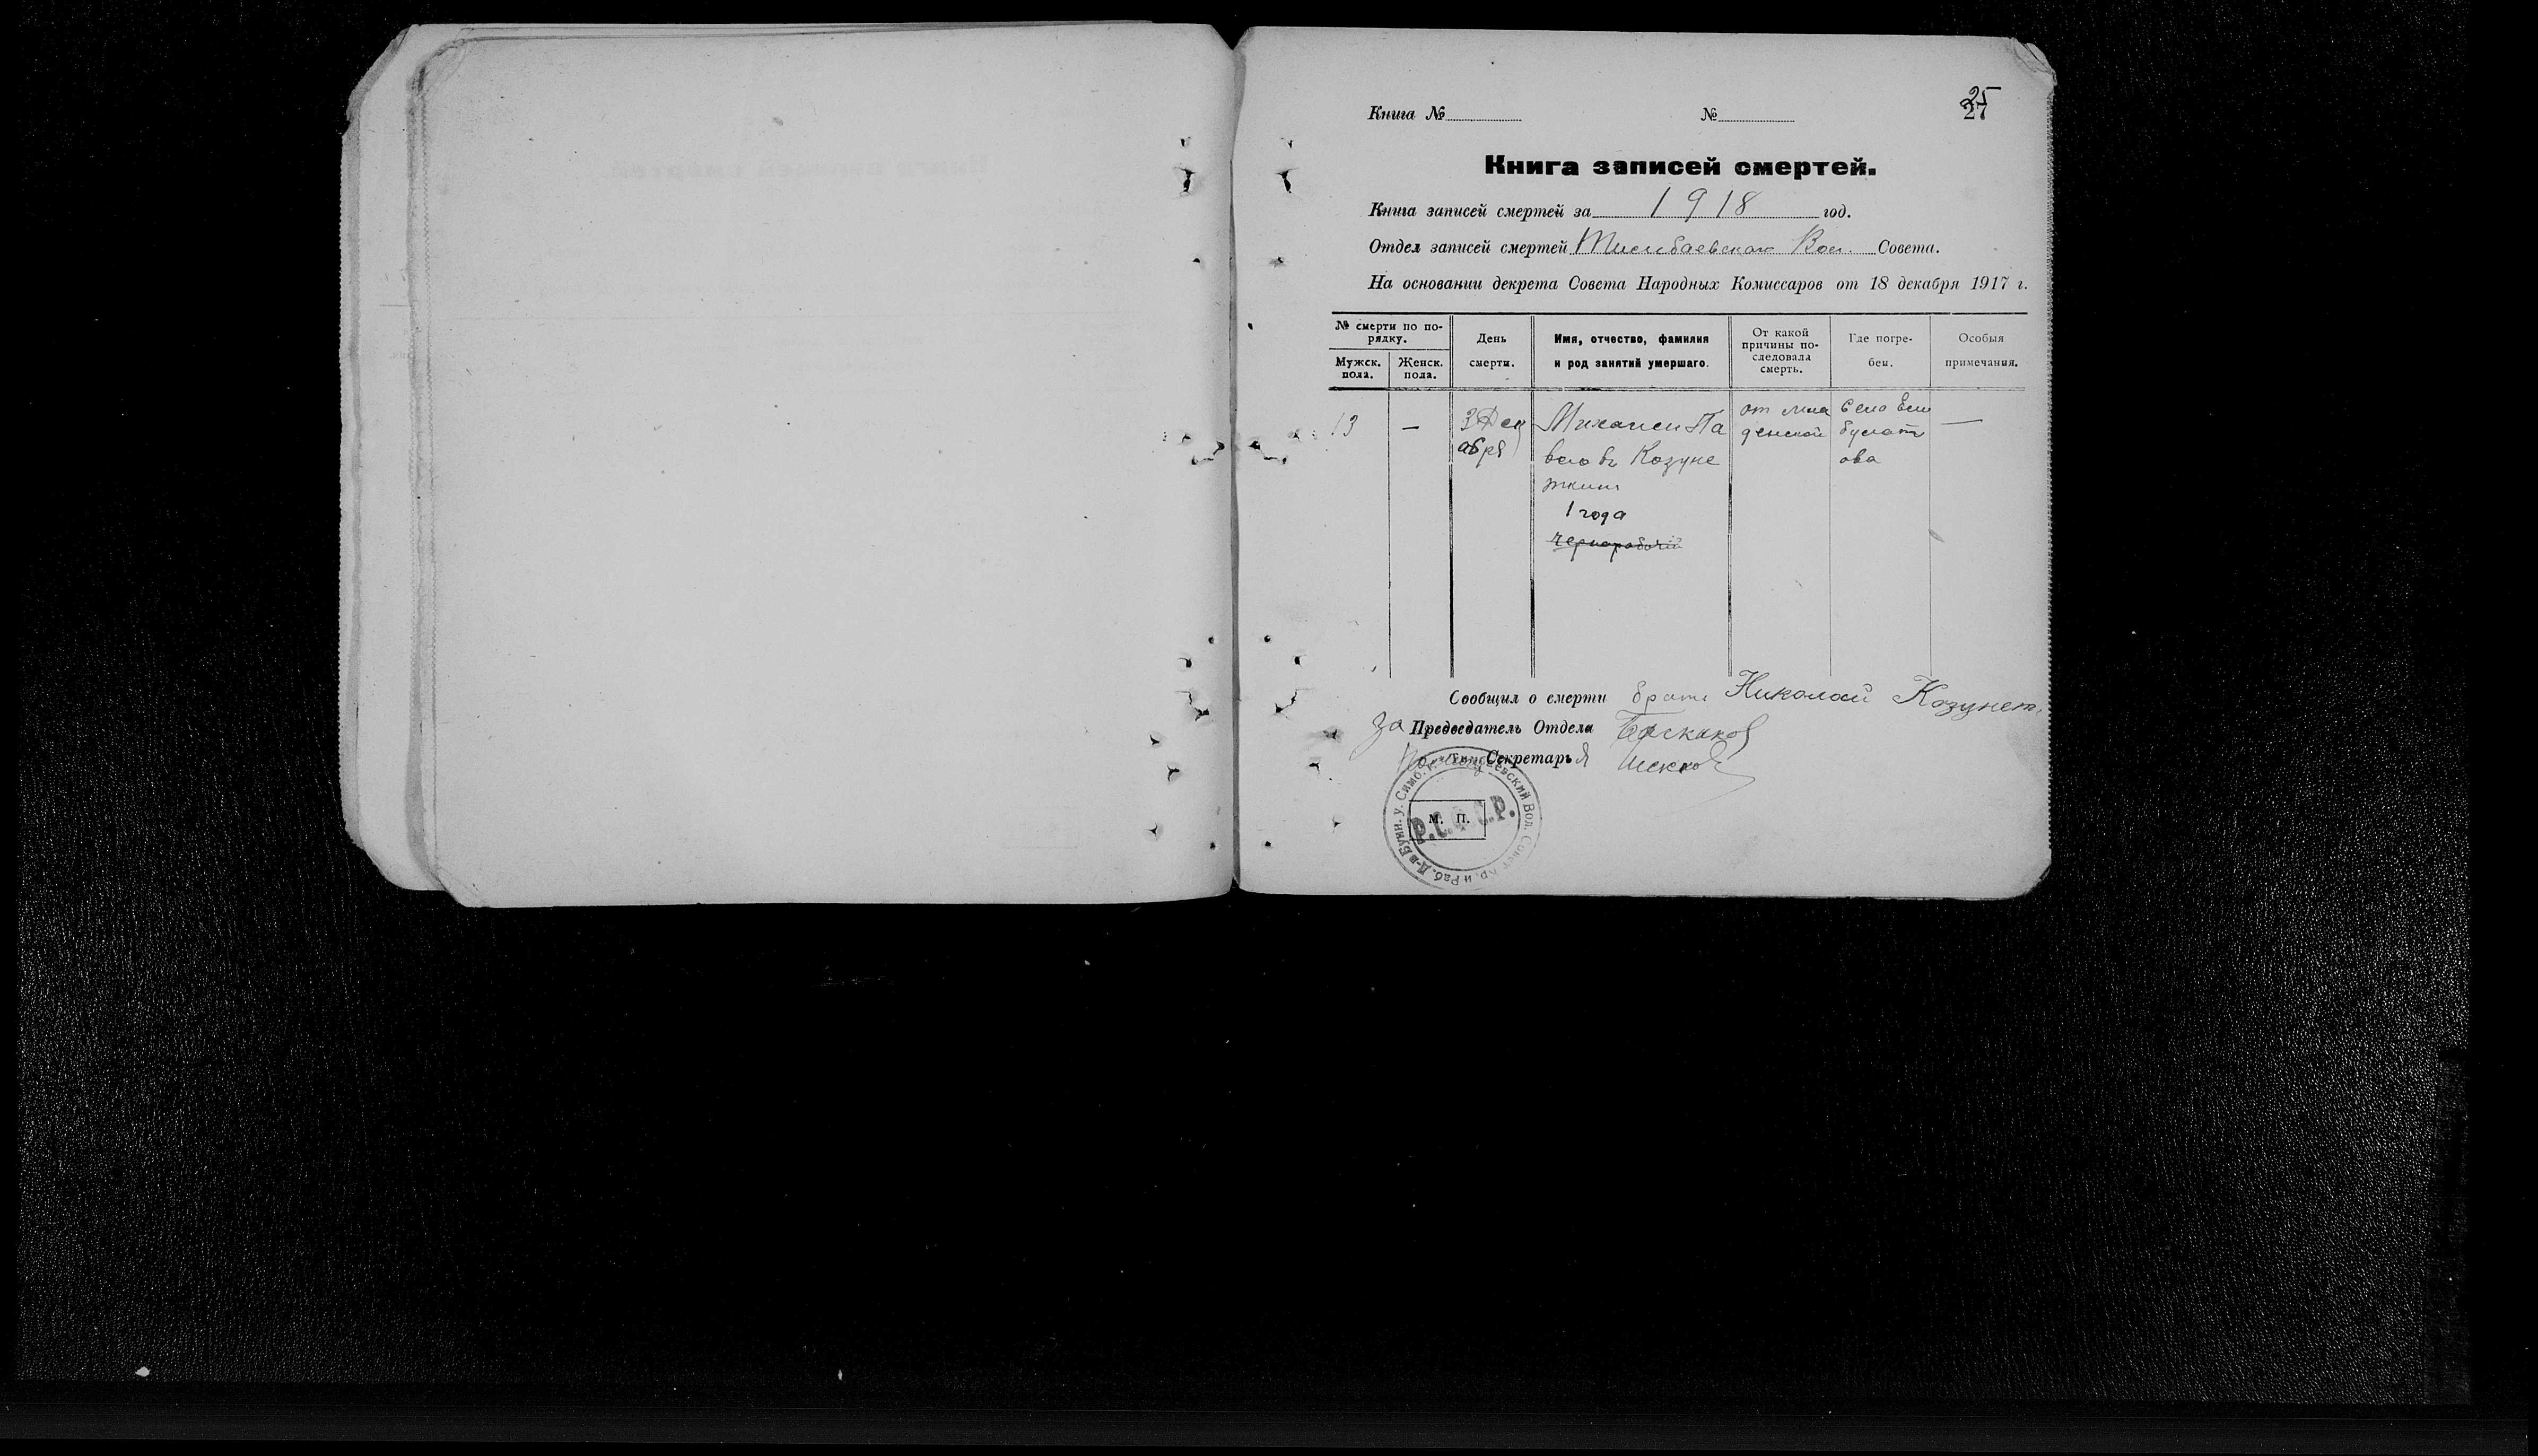 25
27
Книга № №
Книга записей смертей.
Книга записей смертей за 1918 год.
Отдел записей смертей Вол. Совета.
На основании декрета Совета Народных Комиссаров от 18 декабря 1917 г.
№ смерти по по-
рядку.
Мужск.
пола.
Женск.
пола.
День
смерти.
Имя, отчество, фамилия
и род занятий умершаго.
От какой
причины по-
следовала
смерть.
Где погре-
бен.
Особыя
примечания.
13
—
3 Дек
абря
Михаил Па
влов Козуне
ткин
1 года
чернорабочий
от мла
денской
Село
булат
ова
—
Сообщил о смерти брат Николай Козунет.
За Председатель Отдела Баскаков
Секретарь
М. П.
Р.С.Ф.С.Р.
Вол. Совет Кр. и Раб. Д-в Буин. у. Симб. г.